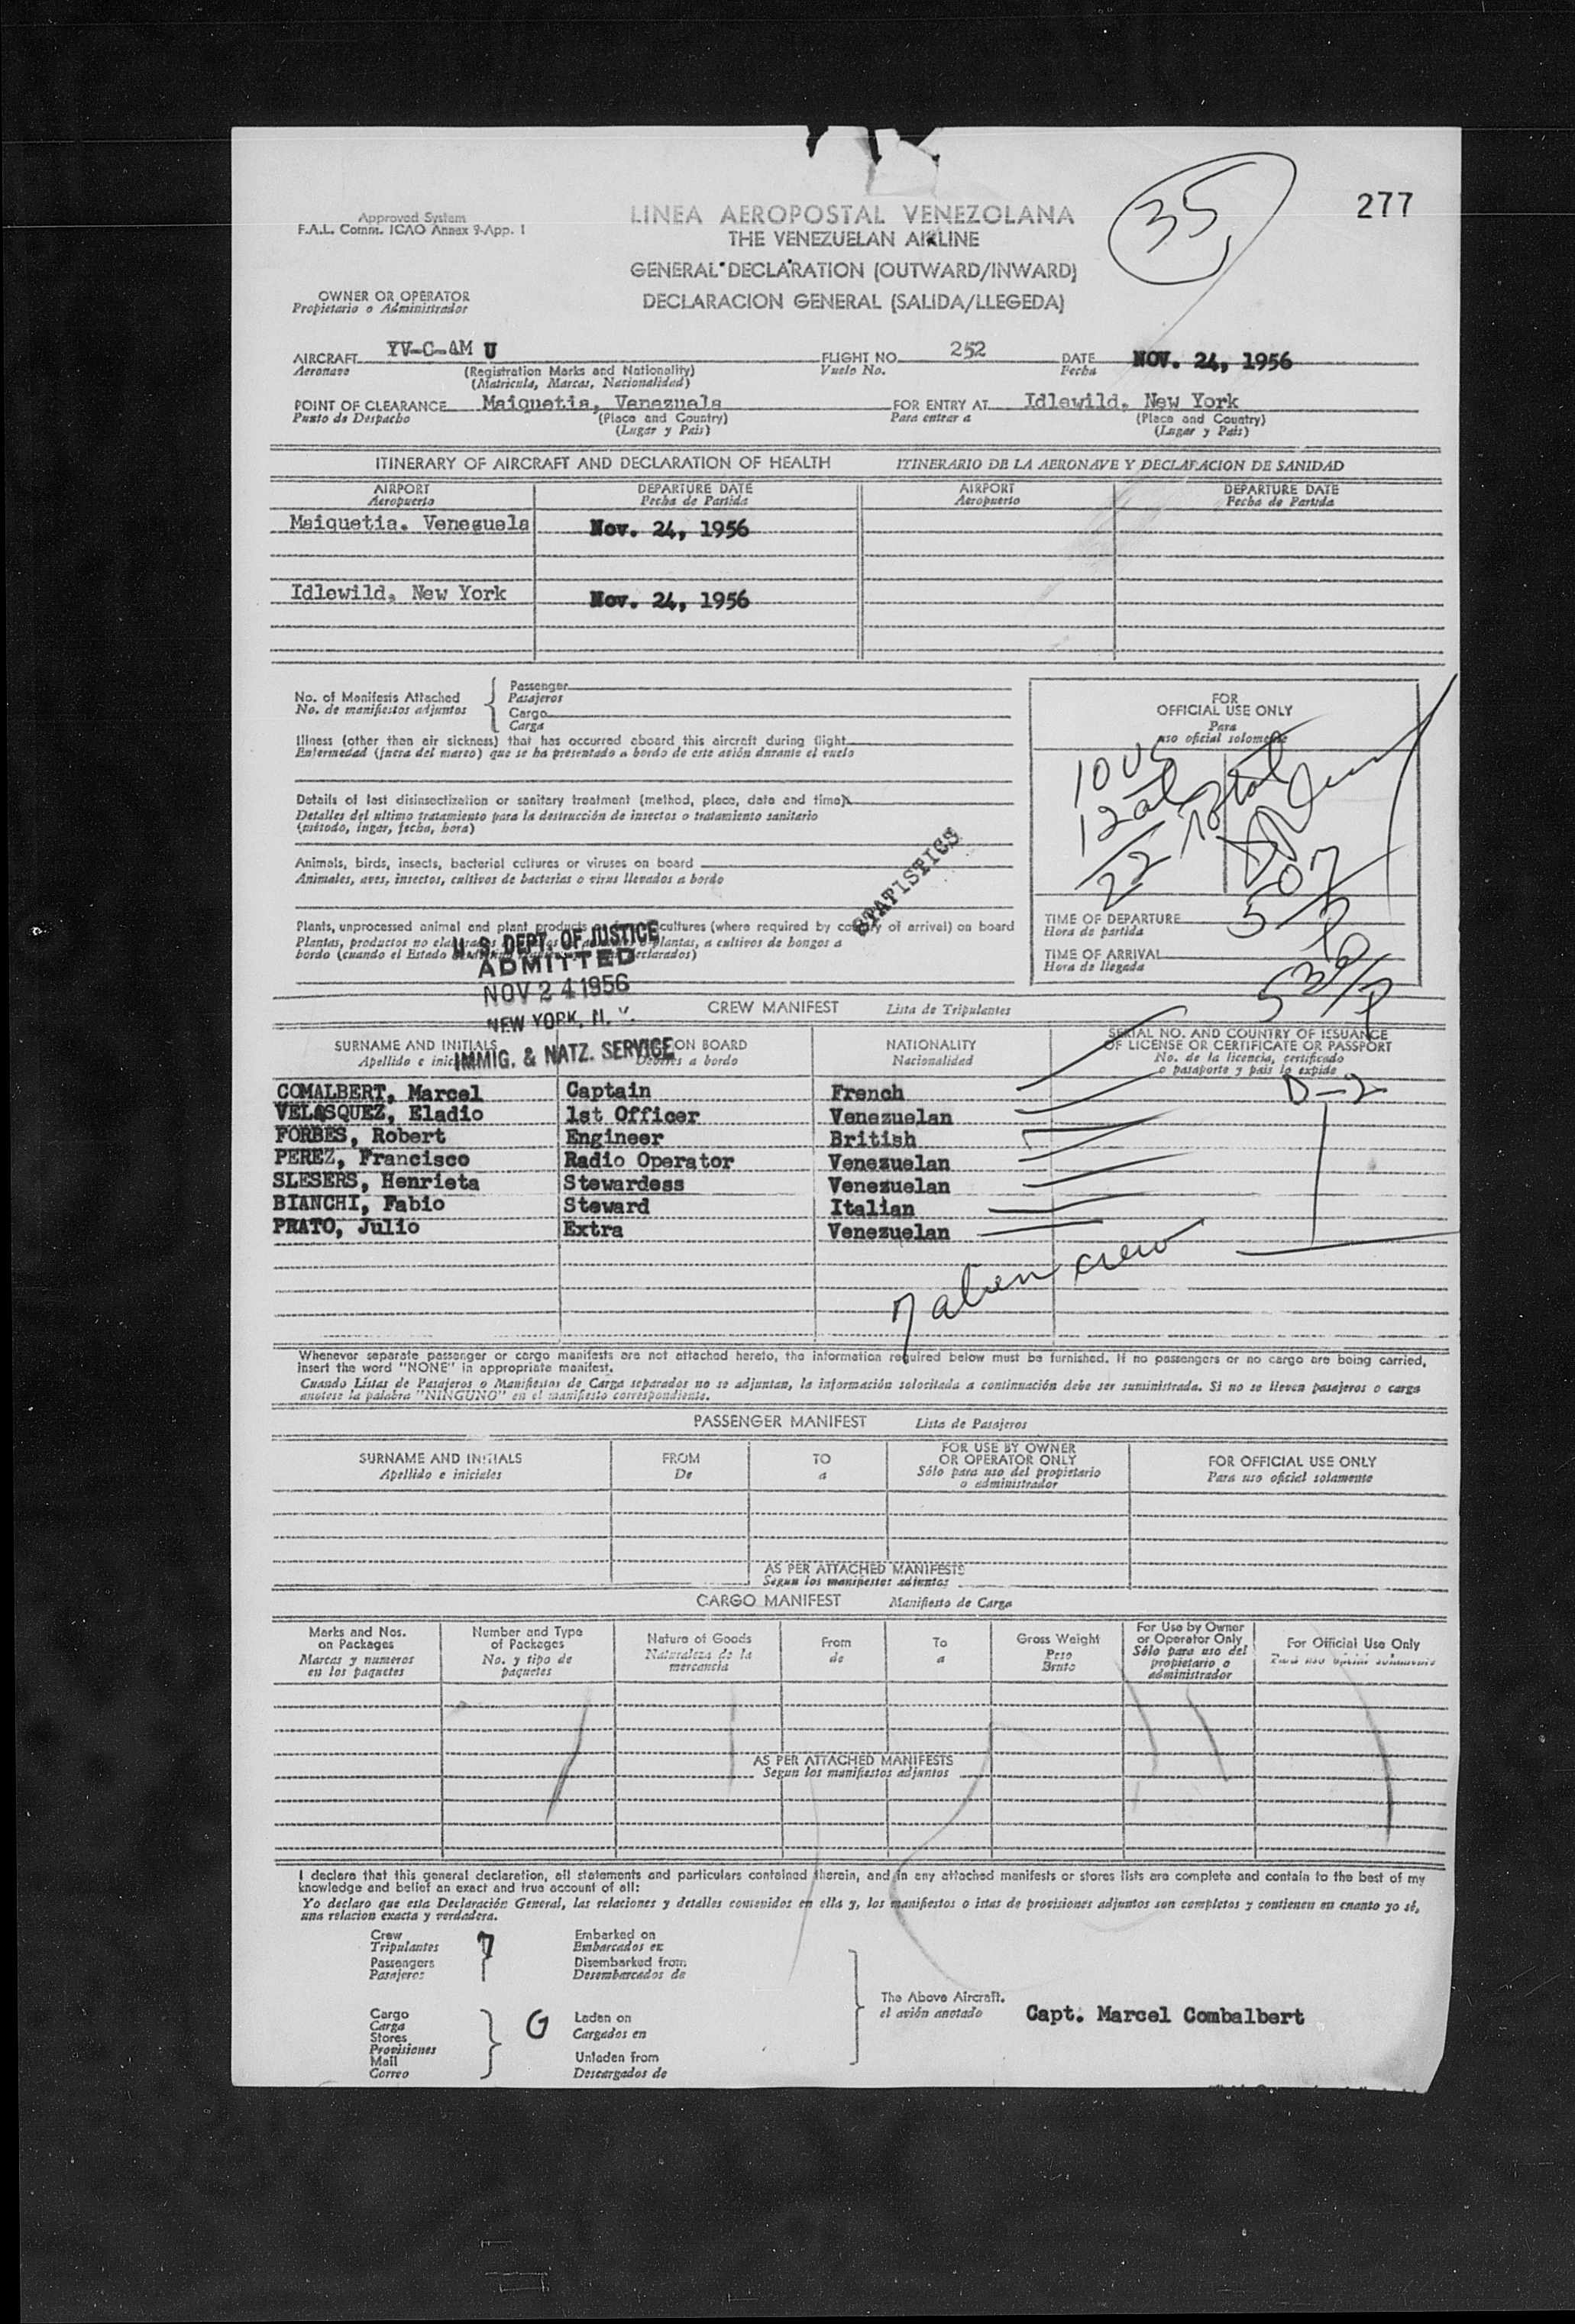 35
277
Approved System
F.A.L. Comm. ICAO Annex 9-App. 1
LINEA AEROPOSTAL VENEZOLANA
THE VENEZUELAN AIRLINE
GENERAL DECLARATION (OUTWARD/INWARD)
DECLARACION GENERAL (SALIDA/LLEGEDA)
OWNER OR OPERATOR
Propietario o Administrador
AIRCRAFT YV-C-AM U FLIGHT NO. 252 DATE NOV. 24, 1956
Aeronave (Registration Marks and Nationality) Vuelo No. Fecha
(Matricula, Marcas, Nacionalidad)
POINT OF CLEARANCE Maiquetia, Venezuela FOR ENTRY AT Idlewild, New York
Punto de Despacho (Place and Country) Para entrar a (Place and Country)
(Lugar y Pais) (Lugar y Pais)
ITINERARY OF AIRCRAFT AND DECLARATION OF HEALTH ITINERARIO DE LA AERONAVE Y DECLARACION DE SANIDAD
AIRPORT DEPARTURE DATE AIRPORT DEPARTURE DATE
Aeropuerto Fecha de Partida Aeropuerto Fecha de Partida
Maiquetia. Veneguela Nov. 24, 1956
Idlewild, New York Nov. 24, 1956
No. of Manifests Attached
No. de manifiestos adjuntos
Passenger
Pasajeros
Cargo
Carga
Illness (other than air sickness) that has occurred aboard this aircraft during flight
Enfermedad (fuera del mareo) que se ha presentado a bordo de este avión durante el vuelo
Details of last disinsectization or sanitary treatment (method, place, date and time)
Detalles del ultimo tratamiento para la destrucción de insectos o tratamiento sanitario
(método, lugar, fecha, hora)
Animals, birds, insects, bacterial cultures or viruses on board
Animales, aves, insectos, cultivos de bacterias o virus llevados a bordo
Plants, unprocessed animal and plant products cultures (where required by country of arrival) on board
Plantas, productos no plantas, a cultivos de hongos a
bordo (cuando el Estado declarados)
STATISTICS
U. S. DEPT. OF JUSTICE
ADMITTED
NOV 24 1956
NEW YORK, N. Y.
IMMIG. & NATZ. SERVICE
FOR
OFFICIAL USE ONLY
Para
uso oficial solomente
10 US
12 al
22 Total
507/P
TIME OF DEPARTURE
Hora de partida
TIME OF ARRIVAL
Hora de llegada
536/P
CREW MANIFEST Lista de Tripulantes
SURNAME AND INITIALS ON BOARD NATIONALITY SERIAL NO. AND COUNTRY OF ISSUANCE
OF LICENSE OR CERTIFICATE OR PASSPORT
Apellido e a bordo Nacionalidad No. de la licencia, certificado
o pasaporte y pais lo expide
COMALBERT, Marcel Captain French D-2
VELASQUEZ, Eladio 1st Officer Venezuelan
FORBES, Robert Engineer British
PEREZ, Francisco Radio Operator Venezuelan
SLESERS, Henrieta Stewardess Venezuelan
BIANCHI, Fabio Steward Italian
PRATO, Julio Extra Venezuelan
7 alien crew
Whenever separate passenger or cargo manifests are not attached hereto, the information required below must be furnished. If no passengers or no cargo are being carried,
insert the word "NONE" in appropriate manifest.
Cuando Listas de Pasajeros o Manifiestos de Carga separados no se adjuntan, la información solocitada a continuación debe ser suministrada. Si no se lleven pasajeros o carga
anotese la palabra "NINGUNO" en el manifiesto correspondiente.
PASSENGER MANIFEST Lista de Pasajeros
SURNAME AND INITIALS FROM TO FOR USE BY OWNER
OR OPERATOR ONLY FOR OFFICIAL USE ONLY
Apellido e iniciales De a Sólo para uso del propietario
o administrador Para uso oficial solamente
AS PER ATTACHED MANIFESTS
Segun los manifiestos adjuntos
CARGO MANIFEST Manifiesto de Carga
Marks and Nos.
on Packages
Marcas y numeros
en los paquetes
Number and Type
of Packages
No. y tipo de
paquetes
Nature of Goods
Naturaleza de la
mercancia
From
de
To
a
Gross Weight
Peso
Bruto
For Use by Owner
or Operator Only
Sólo para uso del
propietario o
administrador
For Official Use Only
Para uso oficial solamente
AS PER ATTACHED MANIFESTS
Segun los manifiestos adjuntos
I declare that this general declaration, all statements and particulars contained therein, and in any attached manifests or stores lists are complete and contain to the best of my
knowledge and belief an exact and true account of all:
Yo declaro que esta Declaración General, las relaciones y detalles contenidos en ella y, los manifiestos o istas de provisiones adjuntos son completos y contienen en cuanto yo sé,
una relacion exacta y verdadera.
Crew 7 Embarked on
Tripulantes Embarcados en
Passengers Disembarked from
Pasajeros Desembarcados de
Cargo
Carga
Stores
Provisiones
Mail
Correo
G
Laden on
Cargados en
Unladen from
Descargados de
The Above Aircraft.
el avión anotado
Capt. Marcel Combalbert